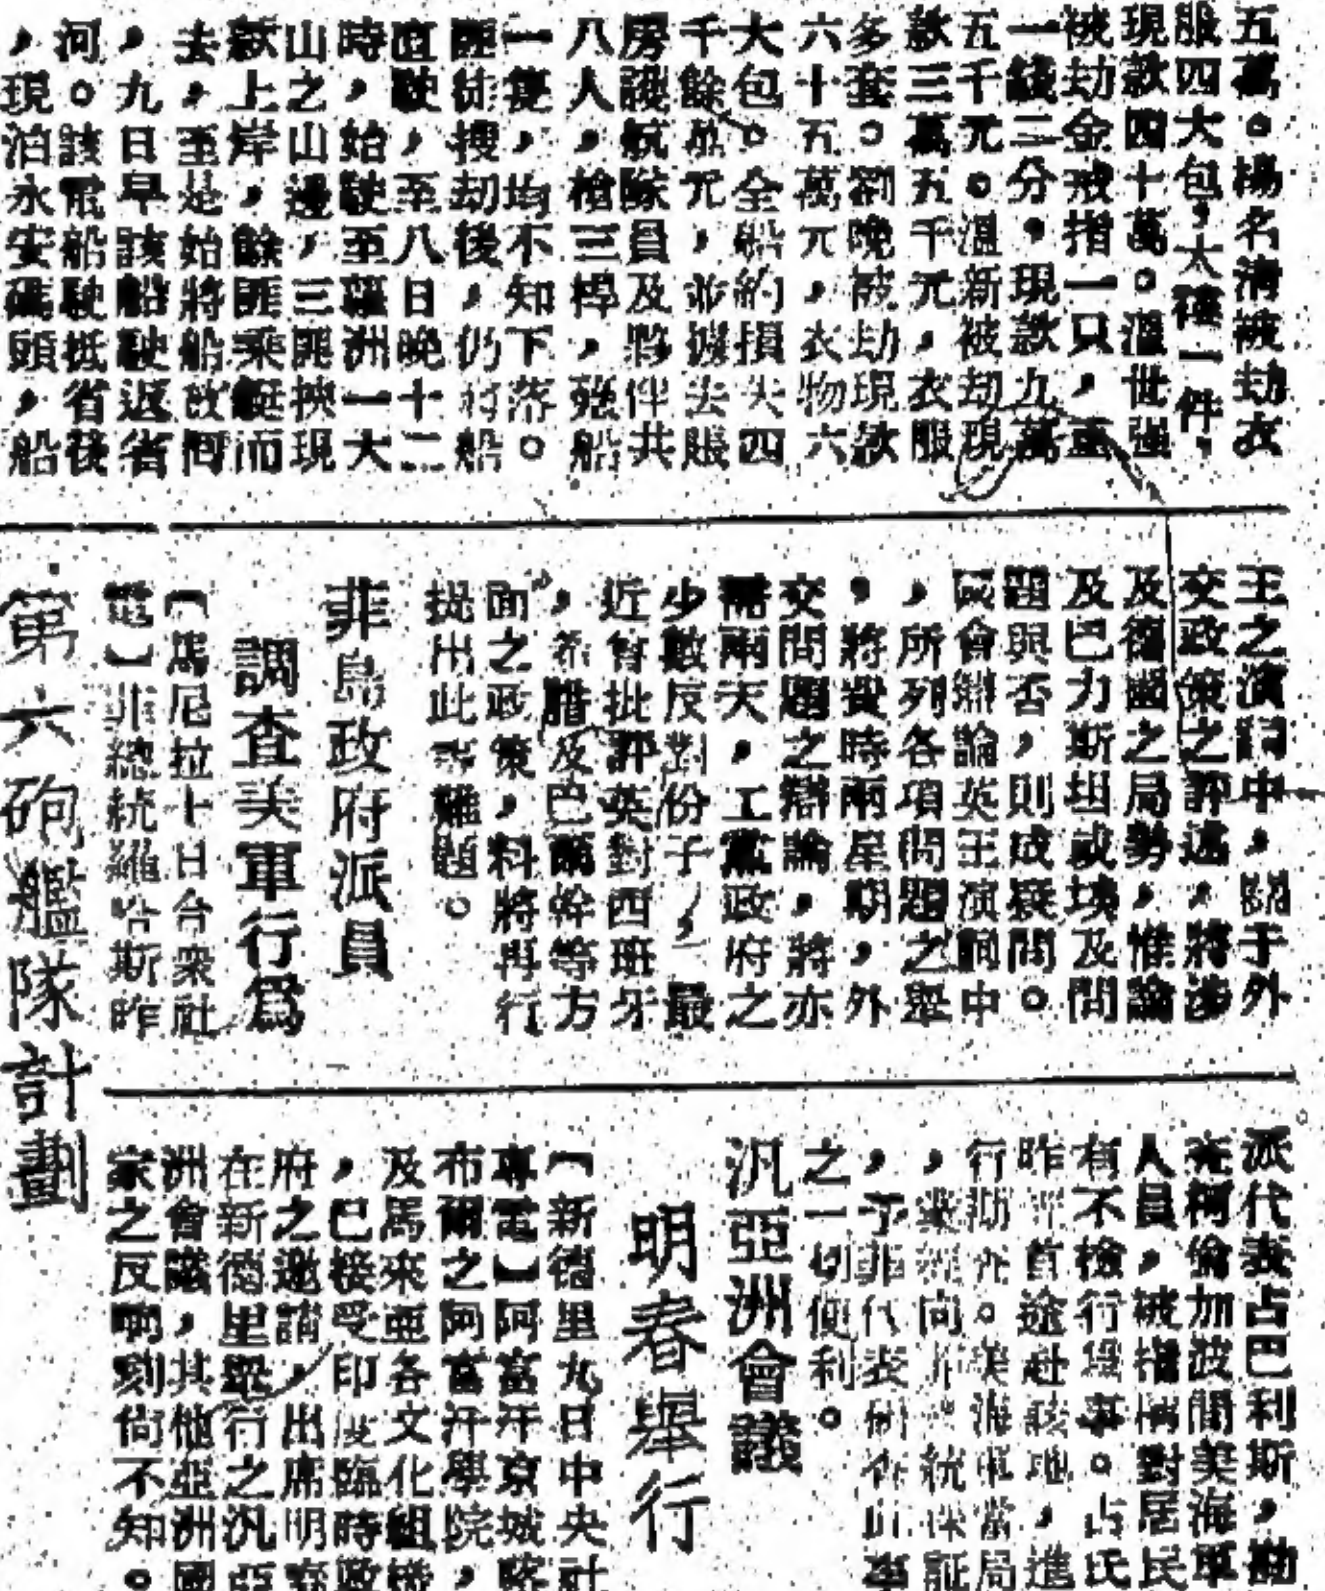 五萬。楊名清被劫衣
服四大包,大褸一件,
現款四十萬。溫世强
被劫金戒指一只,重
一錢二分,現款九萬
五千元。溫新被劫現
款三萬五千元,衣服
多套。劉晚被劫現款
六十五萬元,衣物六
大包。全船約損失四
千餘萬元,並擄去賬
房護航隊員及夥伴共
八人,槍三桿,強船
一艘,均不知下落。
匪徒搜劫後,仍將船
直駛,至八日晚十二
時,始駛至疆洲一大
山之山邊,三匪挾現
款上岸,餘匪乘艇而
去,至是始將船放囘
,九日早該船駛返省
河。該電船駛抵省後
,現泊永安碼頭,船
王之演詞中,關于外
交政策之評述,將涉
及德國之局勢,惟論
及巴力斯坦或埃及問
題與否,則成疑問。
國會辯論英王演詞中
,所列各項問題之舉
,將費時兩星期,外
交問題之辯論,將亦
需兩天,工黨政府之
少數反對份子,最
近曾批評英對西班牙
,希臘及巴爾幹等方
面之政策,料將再行
提出此等難題。
菲島政府派員
調查美軍行為
【馬尼拉十日合衆社
電】菲總統羅哈斯昨
派代表占巴利斯,勘
查柯倫加波間美海軍
人員,被指稱對居民
有不檢行爲事。占氏
昨評首途赴該地,進
行勘查。美海軍當局
,業經向菲總統保証
,予菲代表
之一切便利。
汎亞洲會議
明春舉行
【新德里九日中央社
專電】阿富汗京城喀
布爾之阿富汗學院,
及馬來亞各文化組織
,已接受印度臨時政
府之邀請,出席明春
在新德里舉行之汎亞
洲會議,其他亞洲國
家之反响刻尙不知。
第六砲艦隊計劃